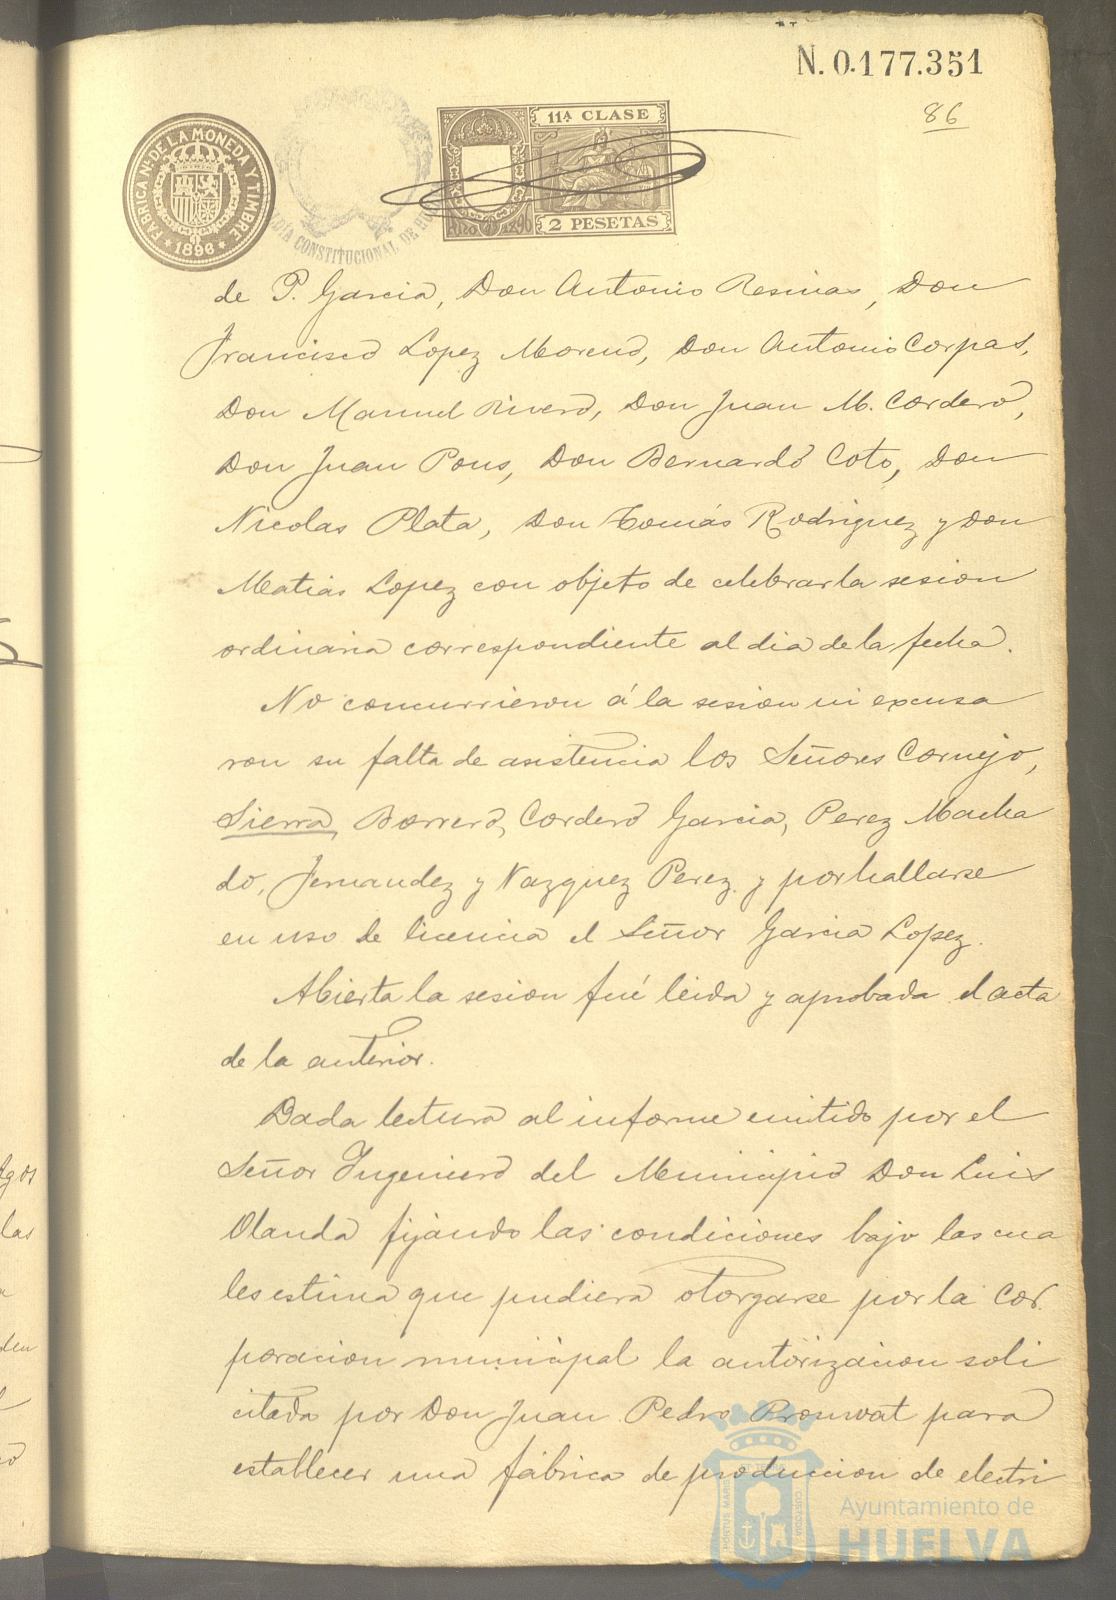 N. 0.177.351
86
FABRICA N. DE LA MONEDA Y TIMBRE
1896
11ª CLASE
2 PESETAS
CONSTITUCIONAL DE
de P. Garcia, Don Antonio Resinas, Don
Francisco Lopez Moreno, Don Antonio Corpas,
Don Manuel Rivero, Don Juan M. Cordero,
Don Juan Pons, Don Bernardo Coto, Don
Nicolas Plata, Don Tomás Rodriguez y Don
Matias Lopez con objeto de celebrar la sesion
ordinaria correspondiente al dia de la fecha.
No concurrieron á la sesion ni excusa
ron su falta de asistencia los Señores Cornejo,
Sierra, Borrero, Cordero Garcia, Perez Macha
do, Fernandez y Vazquez Perez y por hallarse
en uso de licencia el Señor Garcia Lopez.
Abierta la sesion fué leida y aprobada el acta
de la anterior.
Dada lectura al informe emitido por el
Señor Ingeniero del Municipio Don Luis
Olanda fijando las condiciones bajo las cua
les estima que pudiera otorgarse por la Cor.
poracion municipal la autorizacion soli
citada por Don Juan Pedro para
establecer una fábrica de produccion de electri
Ayuntamiento de
HUELVA